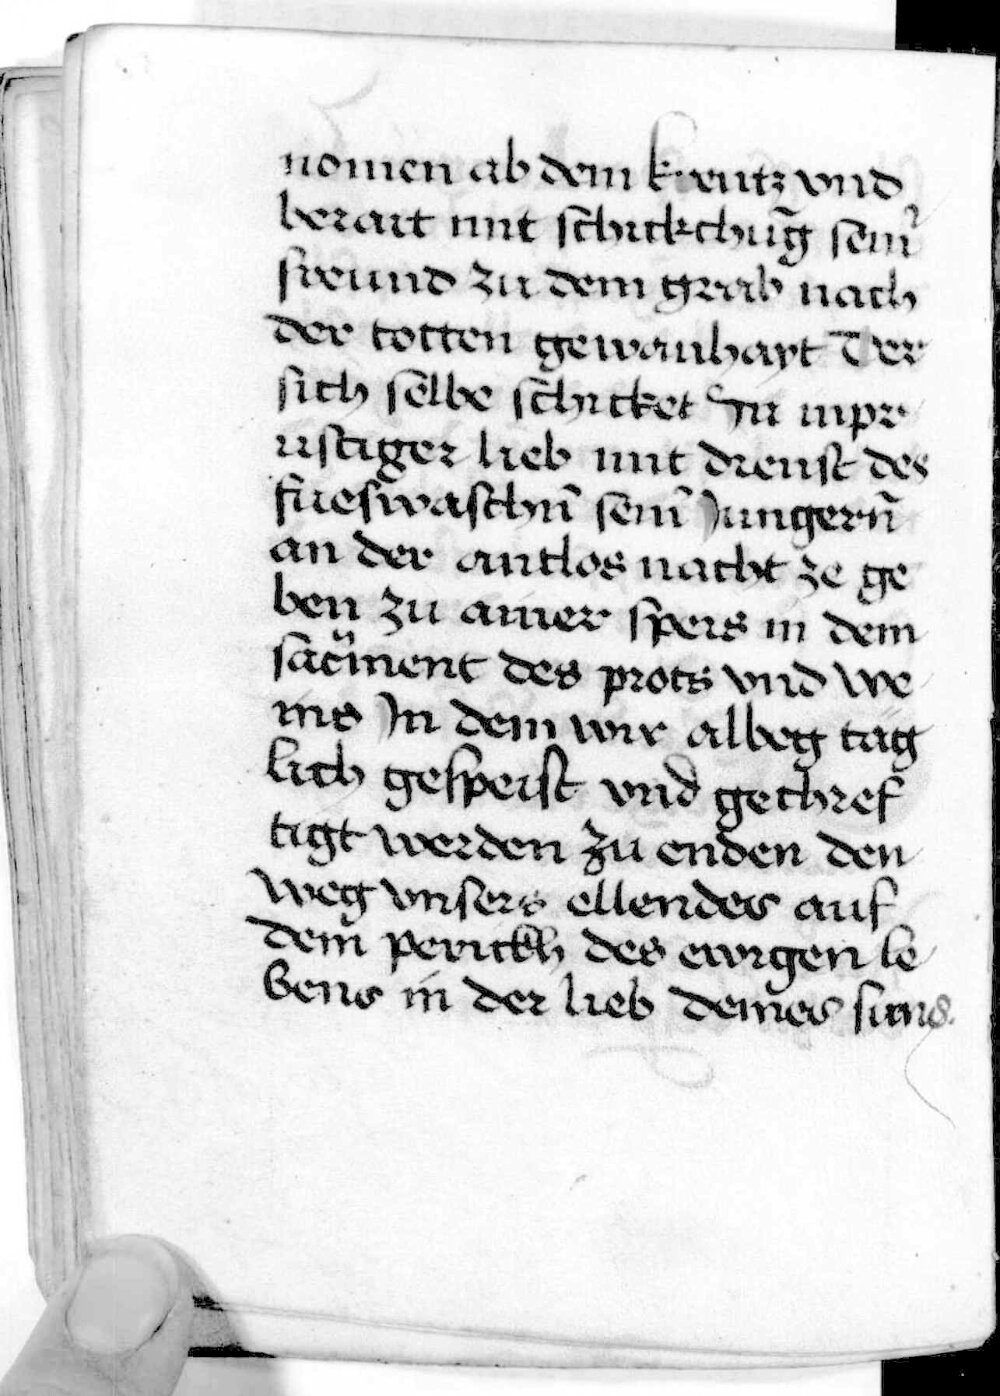 nomen ab dem kreutz vnd
berait mit schickchūg seinˀ
freund zu dem grab nach
der totten gewanhayt Der
sich selbe schicket In inpr
ůstiger lieb mit dienst des
fueswaschn̄ sein̄ Jungern̄
an der antlos nacht ze ge
ben zu ainer speis in dem
sacᵃment des prots vnd we
ins In dem wir albeg tåg
lich gespeist vnd gechref
tigt werden zu enden den
weg vnsers ellendes auf
dem̄ perickh des ewigen le
bens in der lieb deines suns.